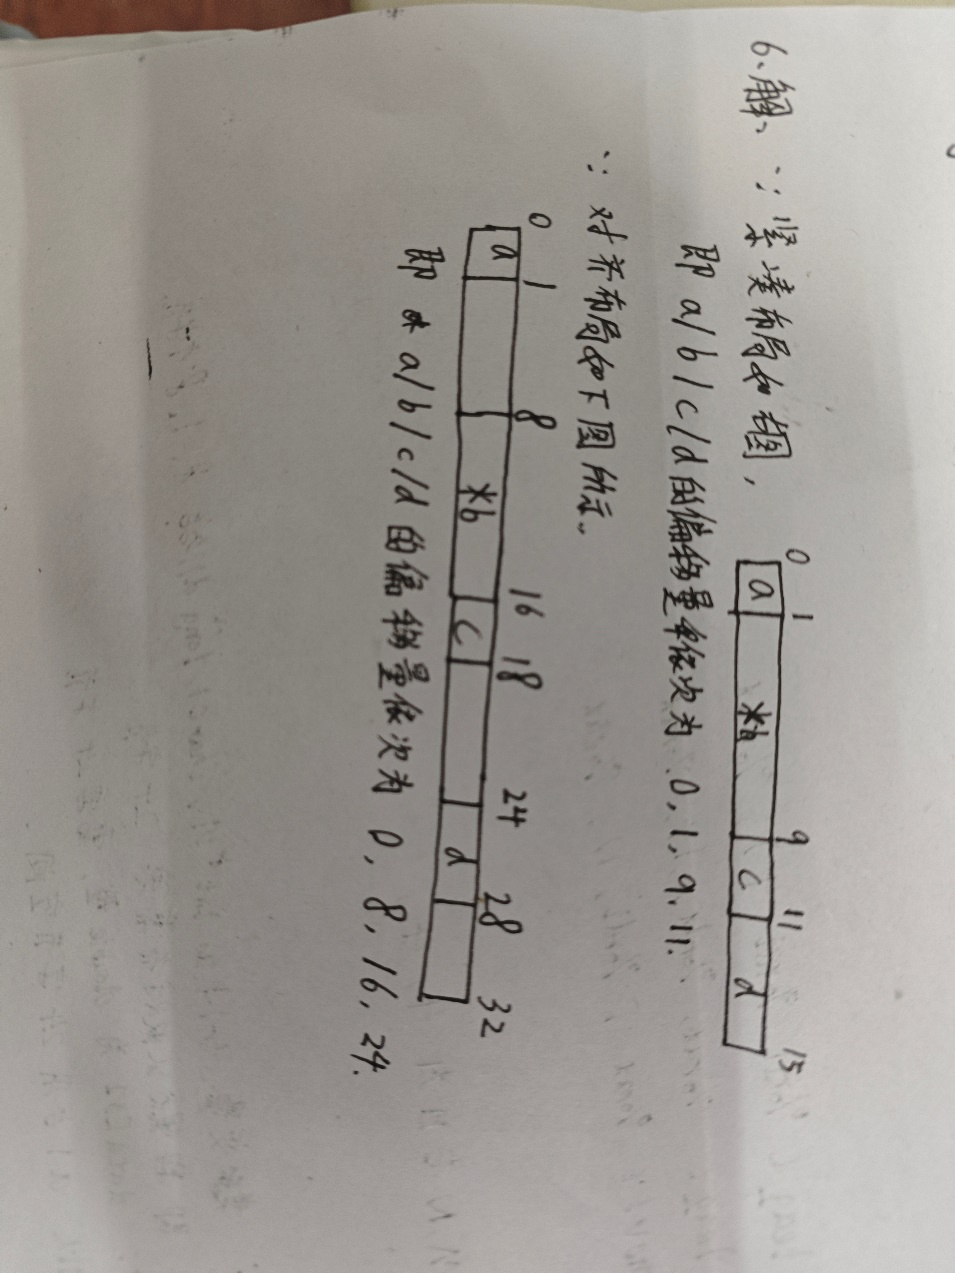 6、解、∵紧凑布局如右图,
0 1 9 11 15
a *b c d
即 a/b/c/d的偏移量依次为 0, 1, 9, 11.
∵对齐布局如下图所示。
0 1 8 16 18 24 28 32
a *b c d
即 a/b/c/d的偏移量依次为 0, 8, 16, 24.